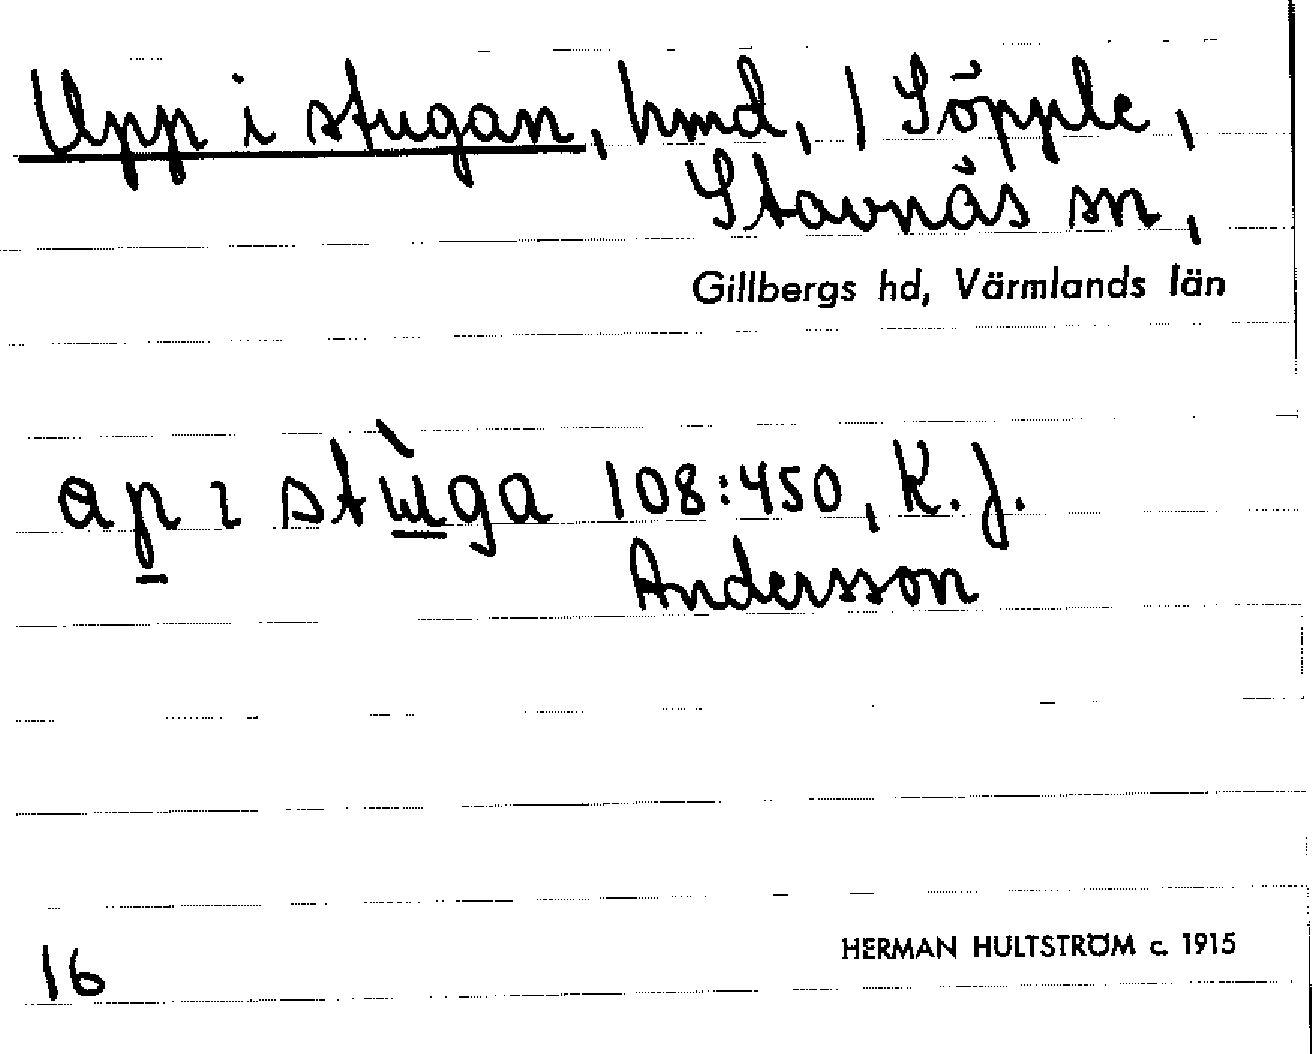 Upp i stugan, hmd, 1 Söpple,
Stavnäs sn,
Gillbergs hd, Värmlands län
ap ı stɯ̀ga 108:450, K. J.
Andersson
16
HERMAN HULTSTRÖM c. 1915